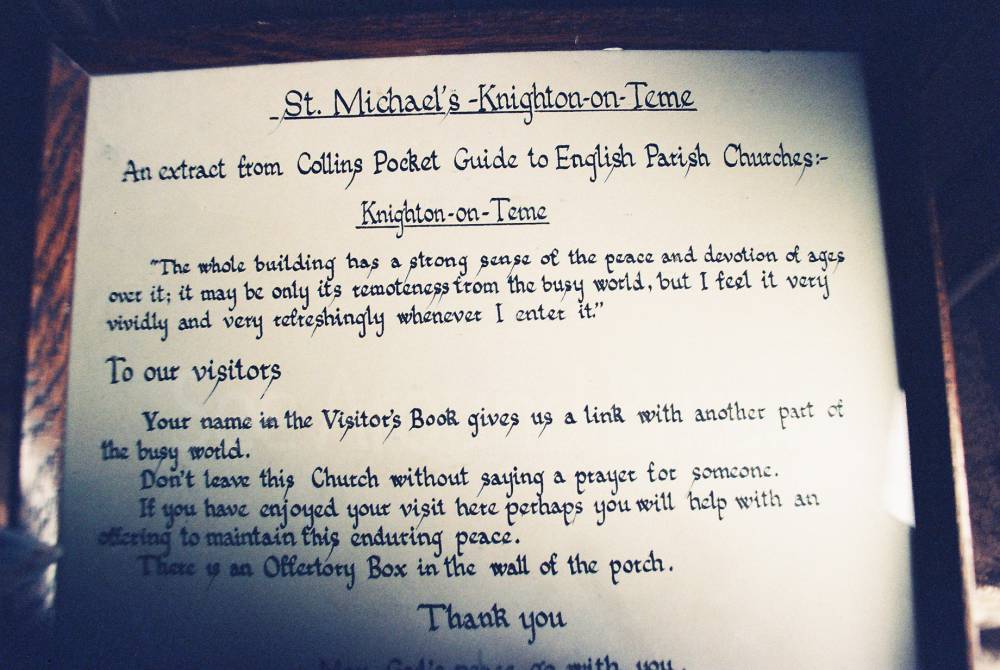 St. Michael's - Knighton-on-Teme
An extract from Collins Pocket Guide to English Parish Churches:-
Knighton-on-Teme
"The whole building has a strong sense of the peace and devotion of ages
over it; it may be only it's remoteness from the busy world, but I feel it very
vividly and very refreshingly whenever I enter it."
To our visitors
Your name in the Visitor's Book gives us a link with another part of
the busy world.
Don't leave this Church without saying a prayer for someone.
If you have enjoyed your visit here perhaps you will help with an
offering to maintain this enduring peace.
There is an Offertory Box in the wall of the porch.
Thank you
May God's peace go with you.